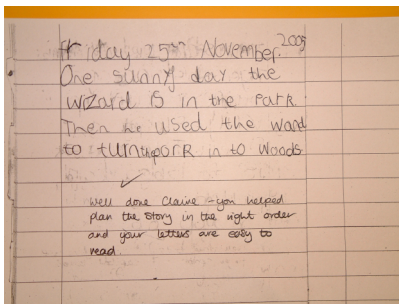 Friday 25th November. 2005
One sunny day the
wizard is in the Park
Then he used the wand
to turn the pork in to woods
well done Claire - you helped
plan the story in the right order
and your letters are easy to
read.